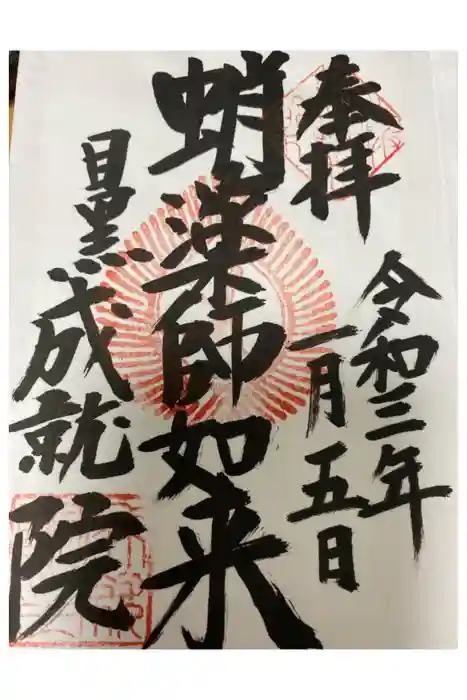 奉拝
令和三年
一月五日
蛸薬師如来
目黒成就院